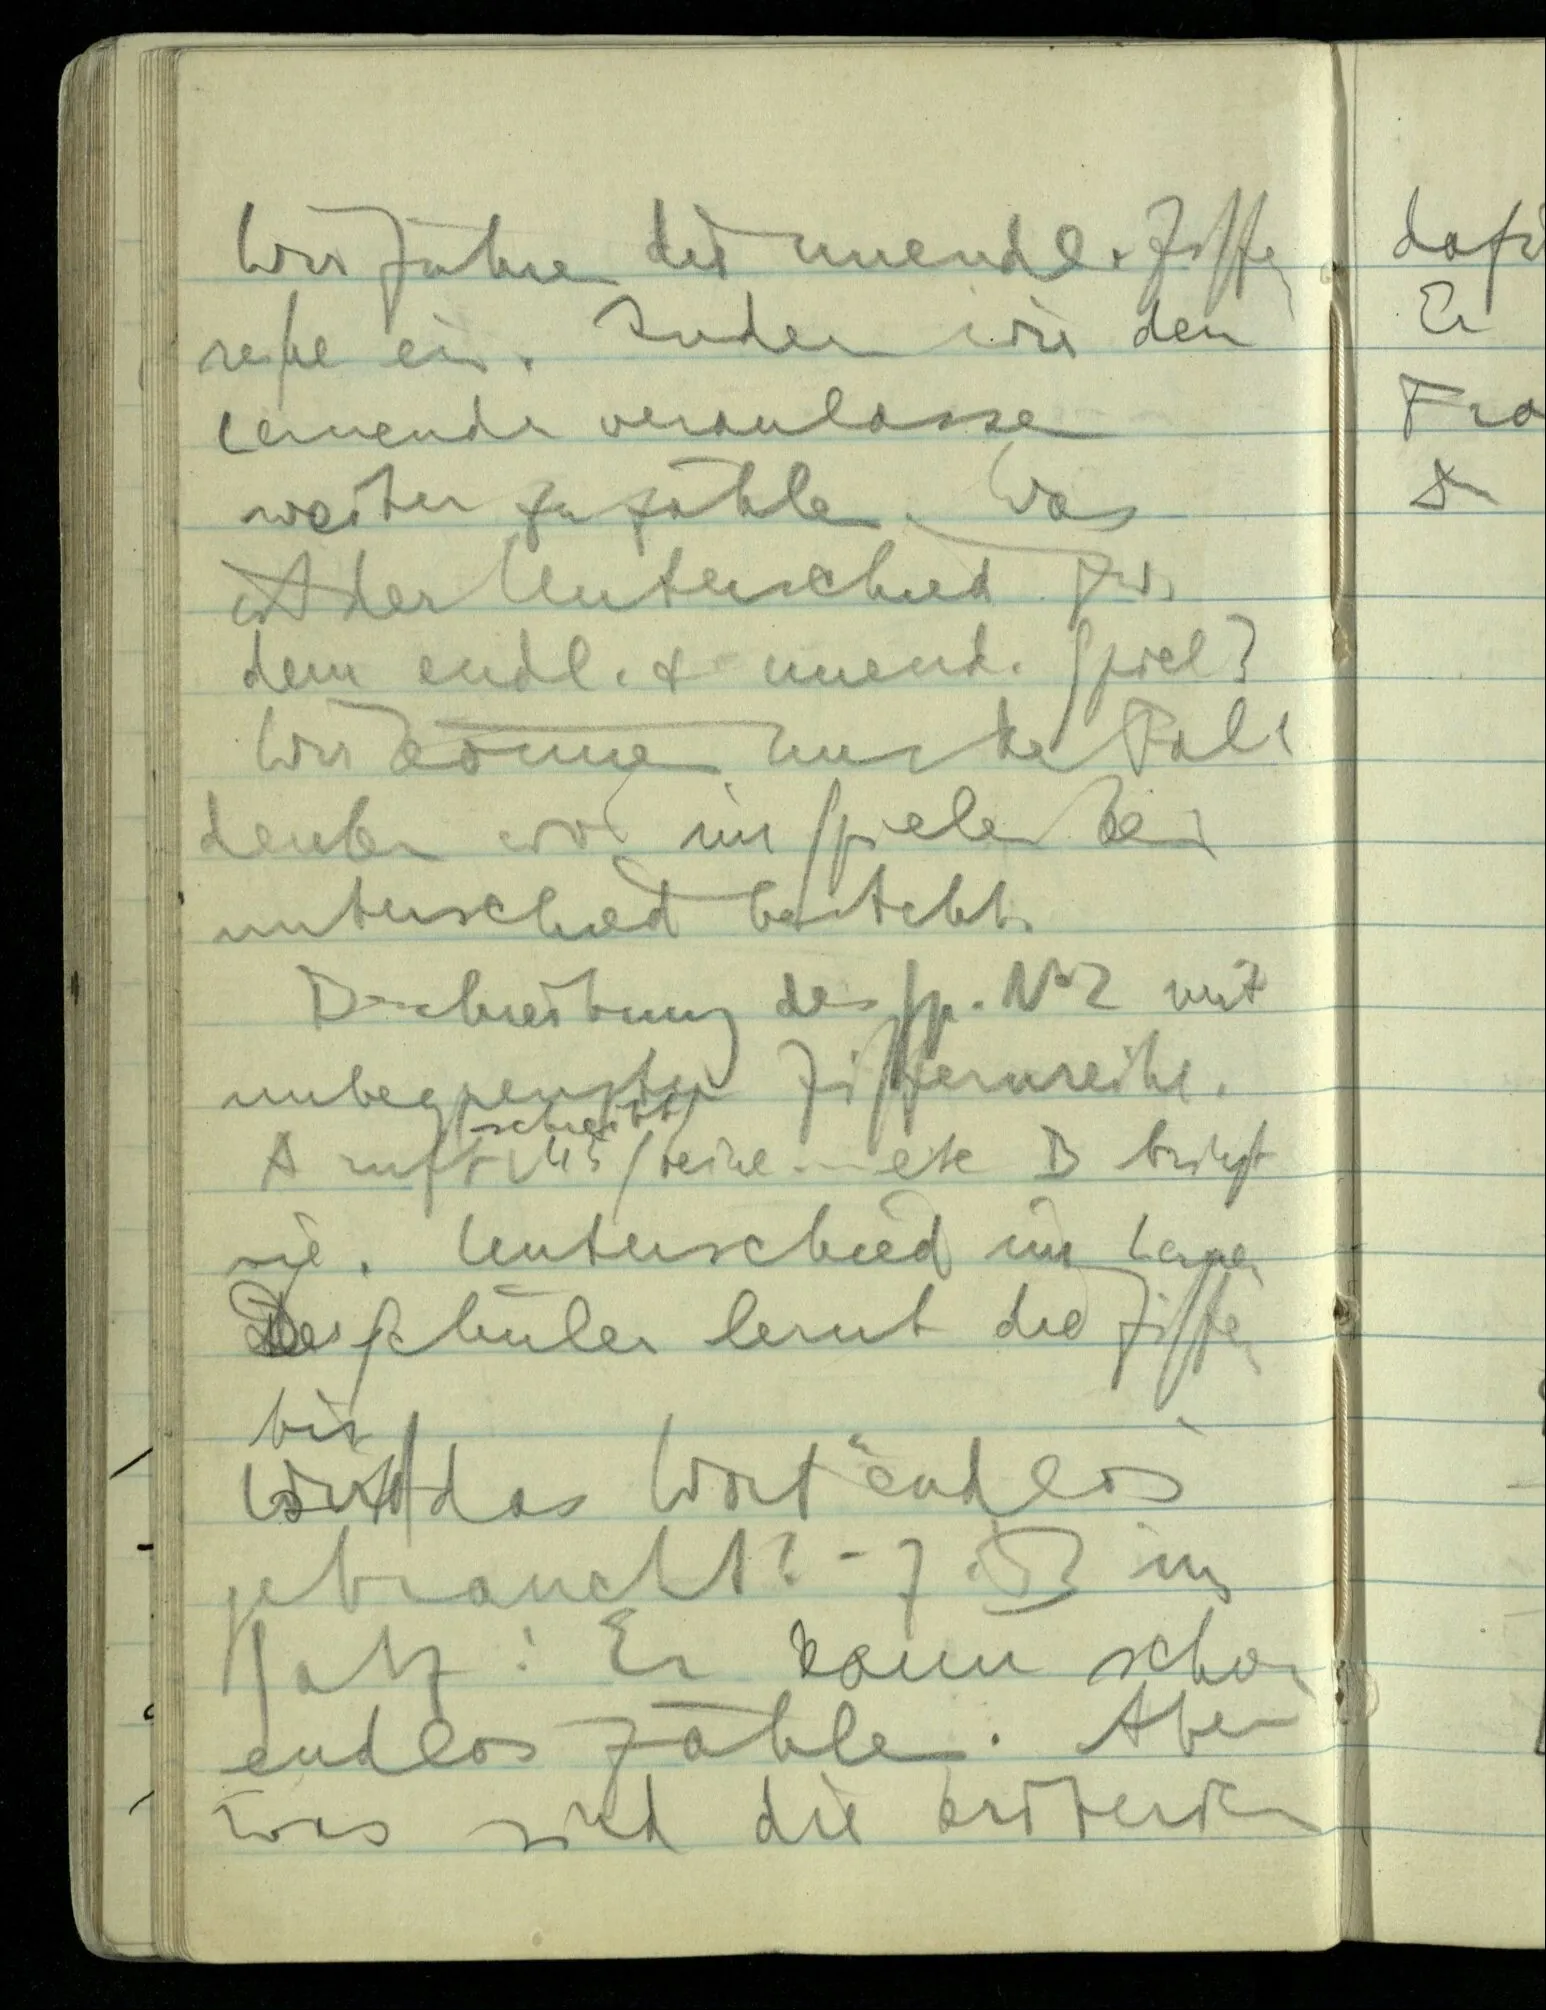 Wir führen die unendl. Ziffern
reihe ein. Indem wir den
Lernenden veranlassen
weiter zu zählen. Was
ist der Unterschied zw.
dem endl. & unend. Spiel?
Wir können uns den Fall
denken wo im Spielen kein
unterschied besteht.
Beschreibung des Sp. No 2 mit
unbegrenzter Ziffernreihe.
schreibt
A ruft " Steine etc B bringt
sie. Unterschied im Lernen
Der Schüler lernt die Ziffern
bis
Wird das Wort "endlos
gebraucht? – z.B im
Satz: Er kann schon
endlos zählen. Aber
was sind die Kriterien
dafür
Er